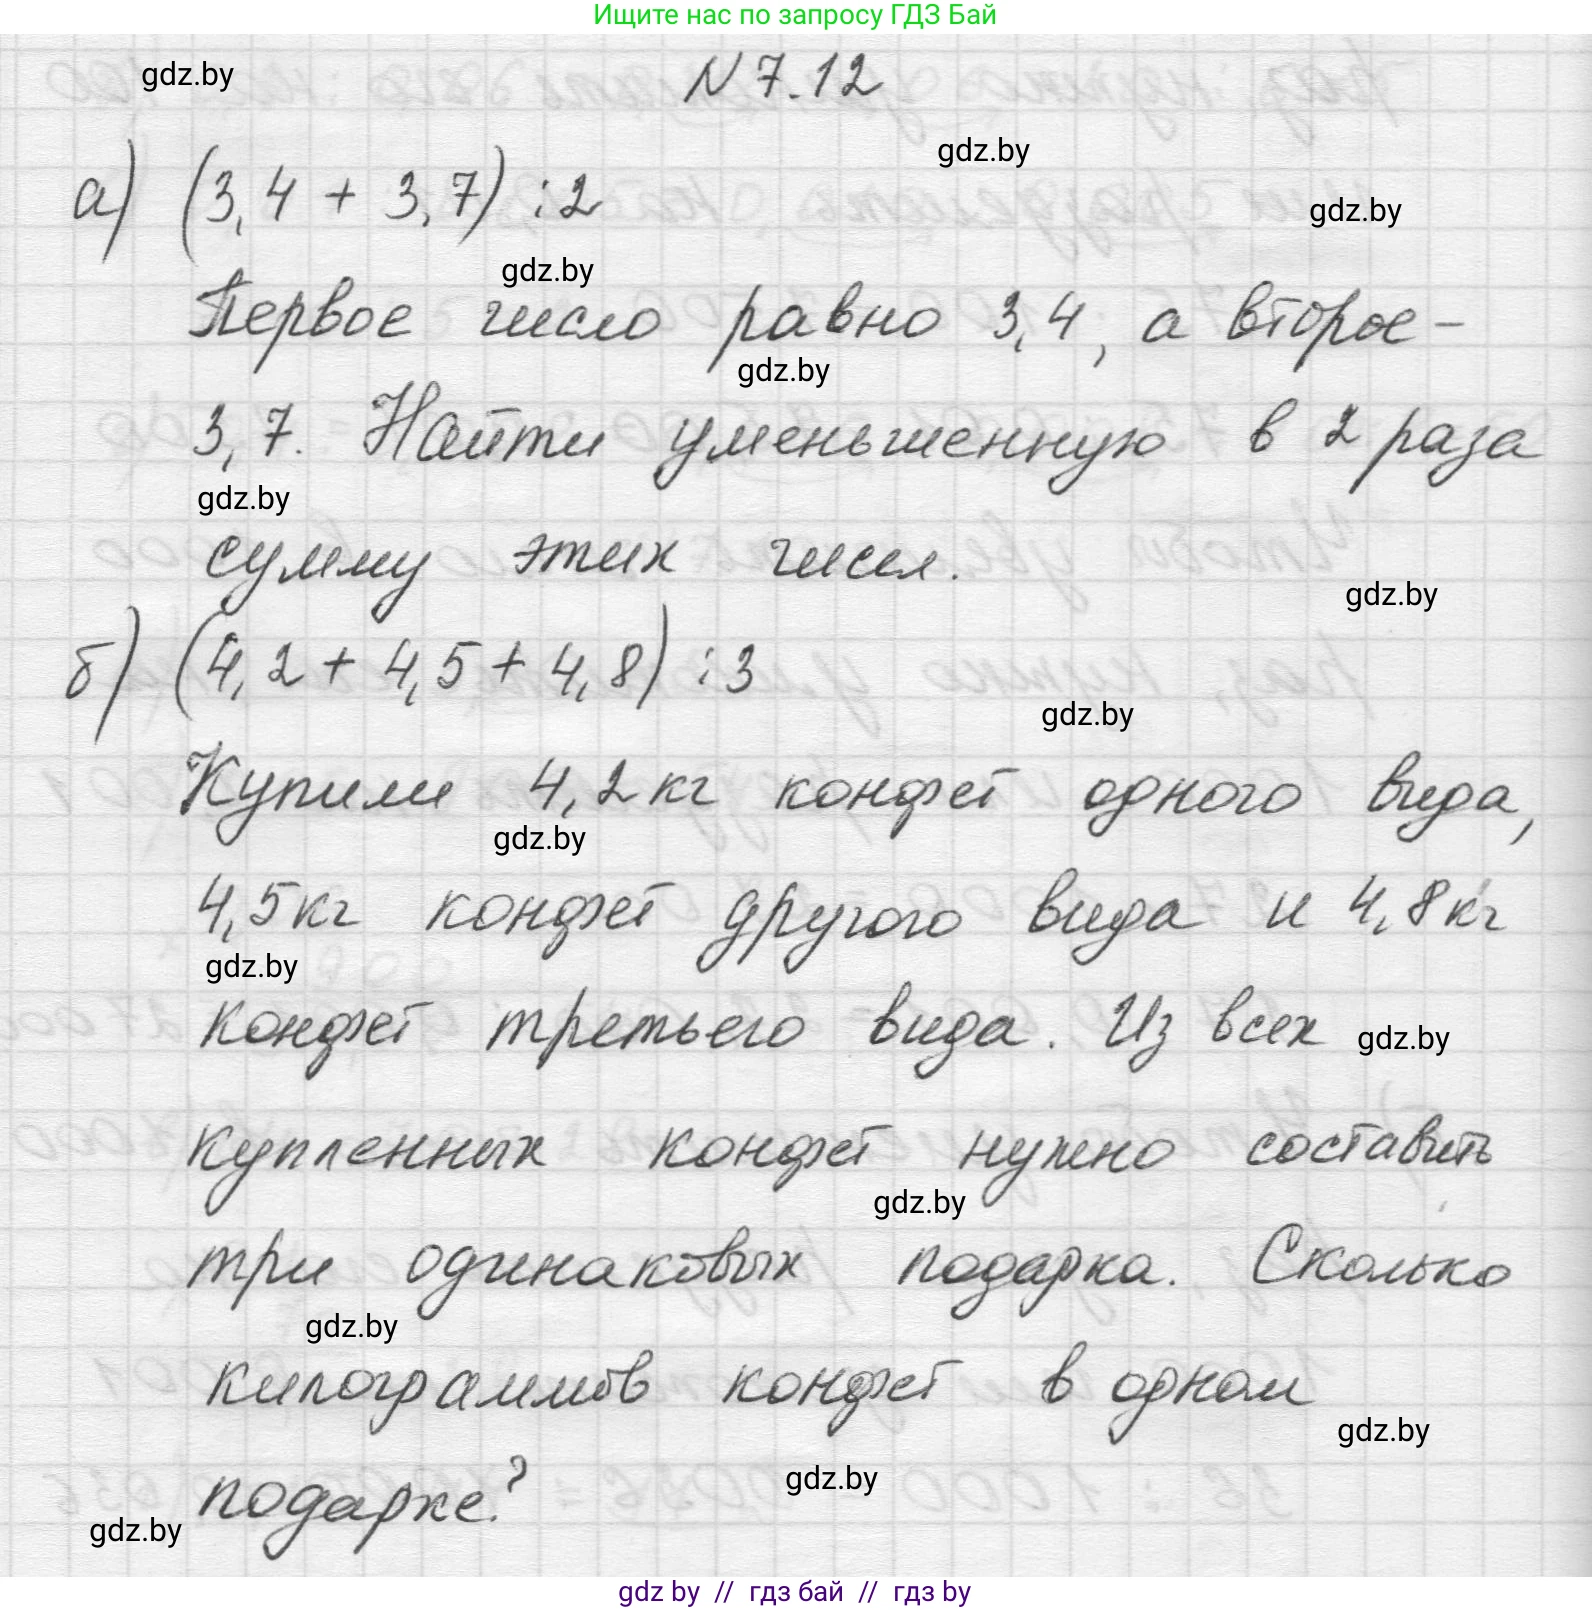 Ищите нас по запросу ГДЗ Бай
N 7.12
gdz.by
gdz.by
а) (3,4 + 3,7) : 2
gdz.by
gdz.by
Первое число равно 3,4, а второе –
gdz.by
3,7. Найти уменьшенную в 2 раза
gdz.by
сумму этих чисел.
gdz.by
б) (4,2 + 4,5 + 4,8) : 3
gdz.by
Купили 4,2 кг конфет одного вида,
gdz.by
4,5 кг конфет другого вида и 4,8 кг
gdz.by
конфет третьего вида. Из всех
gdz.by
купленных конфет нужно составить
gdz.by
три одинаковых подарка. Сколько
gdz.by
килограммов конфет в одном
gdz.by
подарке?
gdz.by
gdz.by
gdz by // гдз бай // гдз by